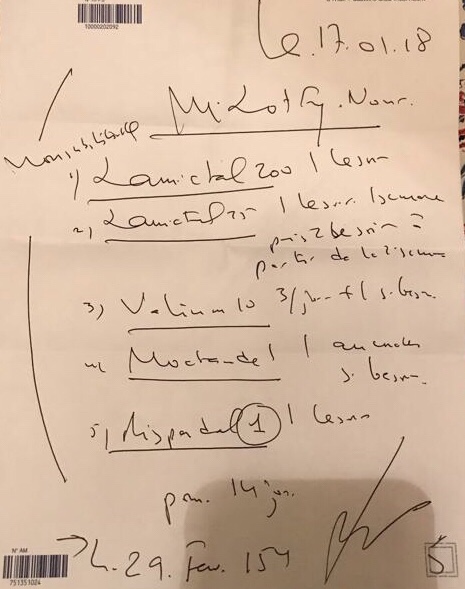 10000202092
le 17.01.18
M. Lotfy. Nour.
1) Lamictal 200 1 le soir
2) Lamictal 25 1 le soir 1 semaine
puis 2 le soir à
partir de la 2 semaine
3) Valium 10 3/jour + 1 si besoin
4) 1 au coucher
si besoin
5) Rispadal 1 1 le soir
pour 14 jours
L. 29. Fev. 154
N° AM
751351024
S